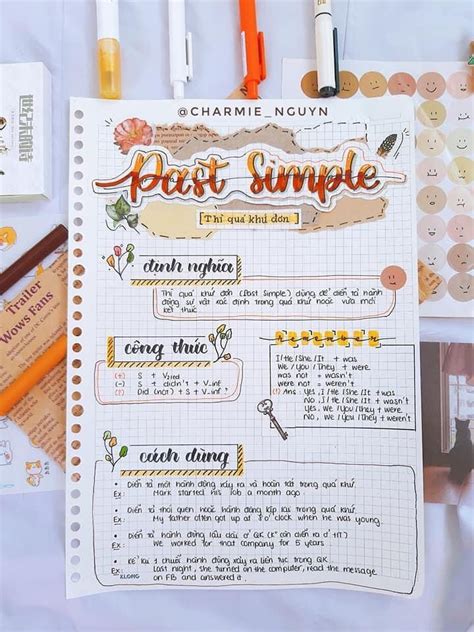 @CHARMIE_NGUYN
Past Simple
[Thì quá khứ đơn]
định nghĩa
Thì quá khứ đơn (Past Simple) dùng để diễn tả hành
động sự vật xác định trong quá khứ hoặc vừa mới
kết thúc
công thức
(+) S + V2/ed
(-) S + didn't + V-inf
(?) Did (not) + S + V-inf ?
Remember
I/He/She/It + was
We/You/They + were
was not = wasn't
were not = weren't
(?) Ans: Yes, I/He/She/It + was
No, I/He/She/It + wasn't
Yes, We/You/They + were.
No, We/You/They + weren't
cách dùng
• Diễn tả một hành động xảy ra và hoàn tất trong quá khứ.
Ex: Mark started his job a month ago.
• Diễn tả thói quen hoặc hành động lặp lại trong quá khứ.
Ex: My father often got up at 8 o' clock when he was young.
• Diễn tả hành động lâu dài ở QK (K° còn diễn ra ở HT)
Ex: We worked for that company for 5 years.
• Kể lại 1 chuỗi hành động xảy ra liên tục trong QK
Ex: Last night, she turned on the computer, read the message
on FB and answered it.
KLONG
Trailer
Wows Fans